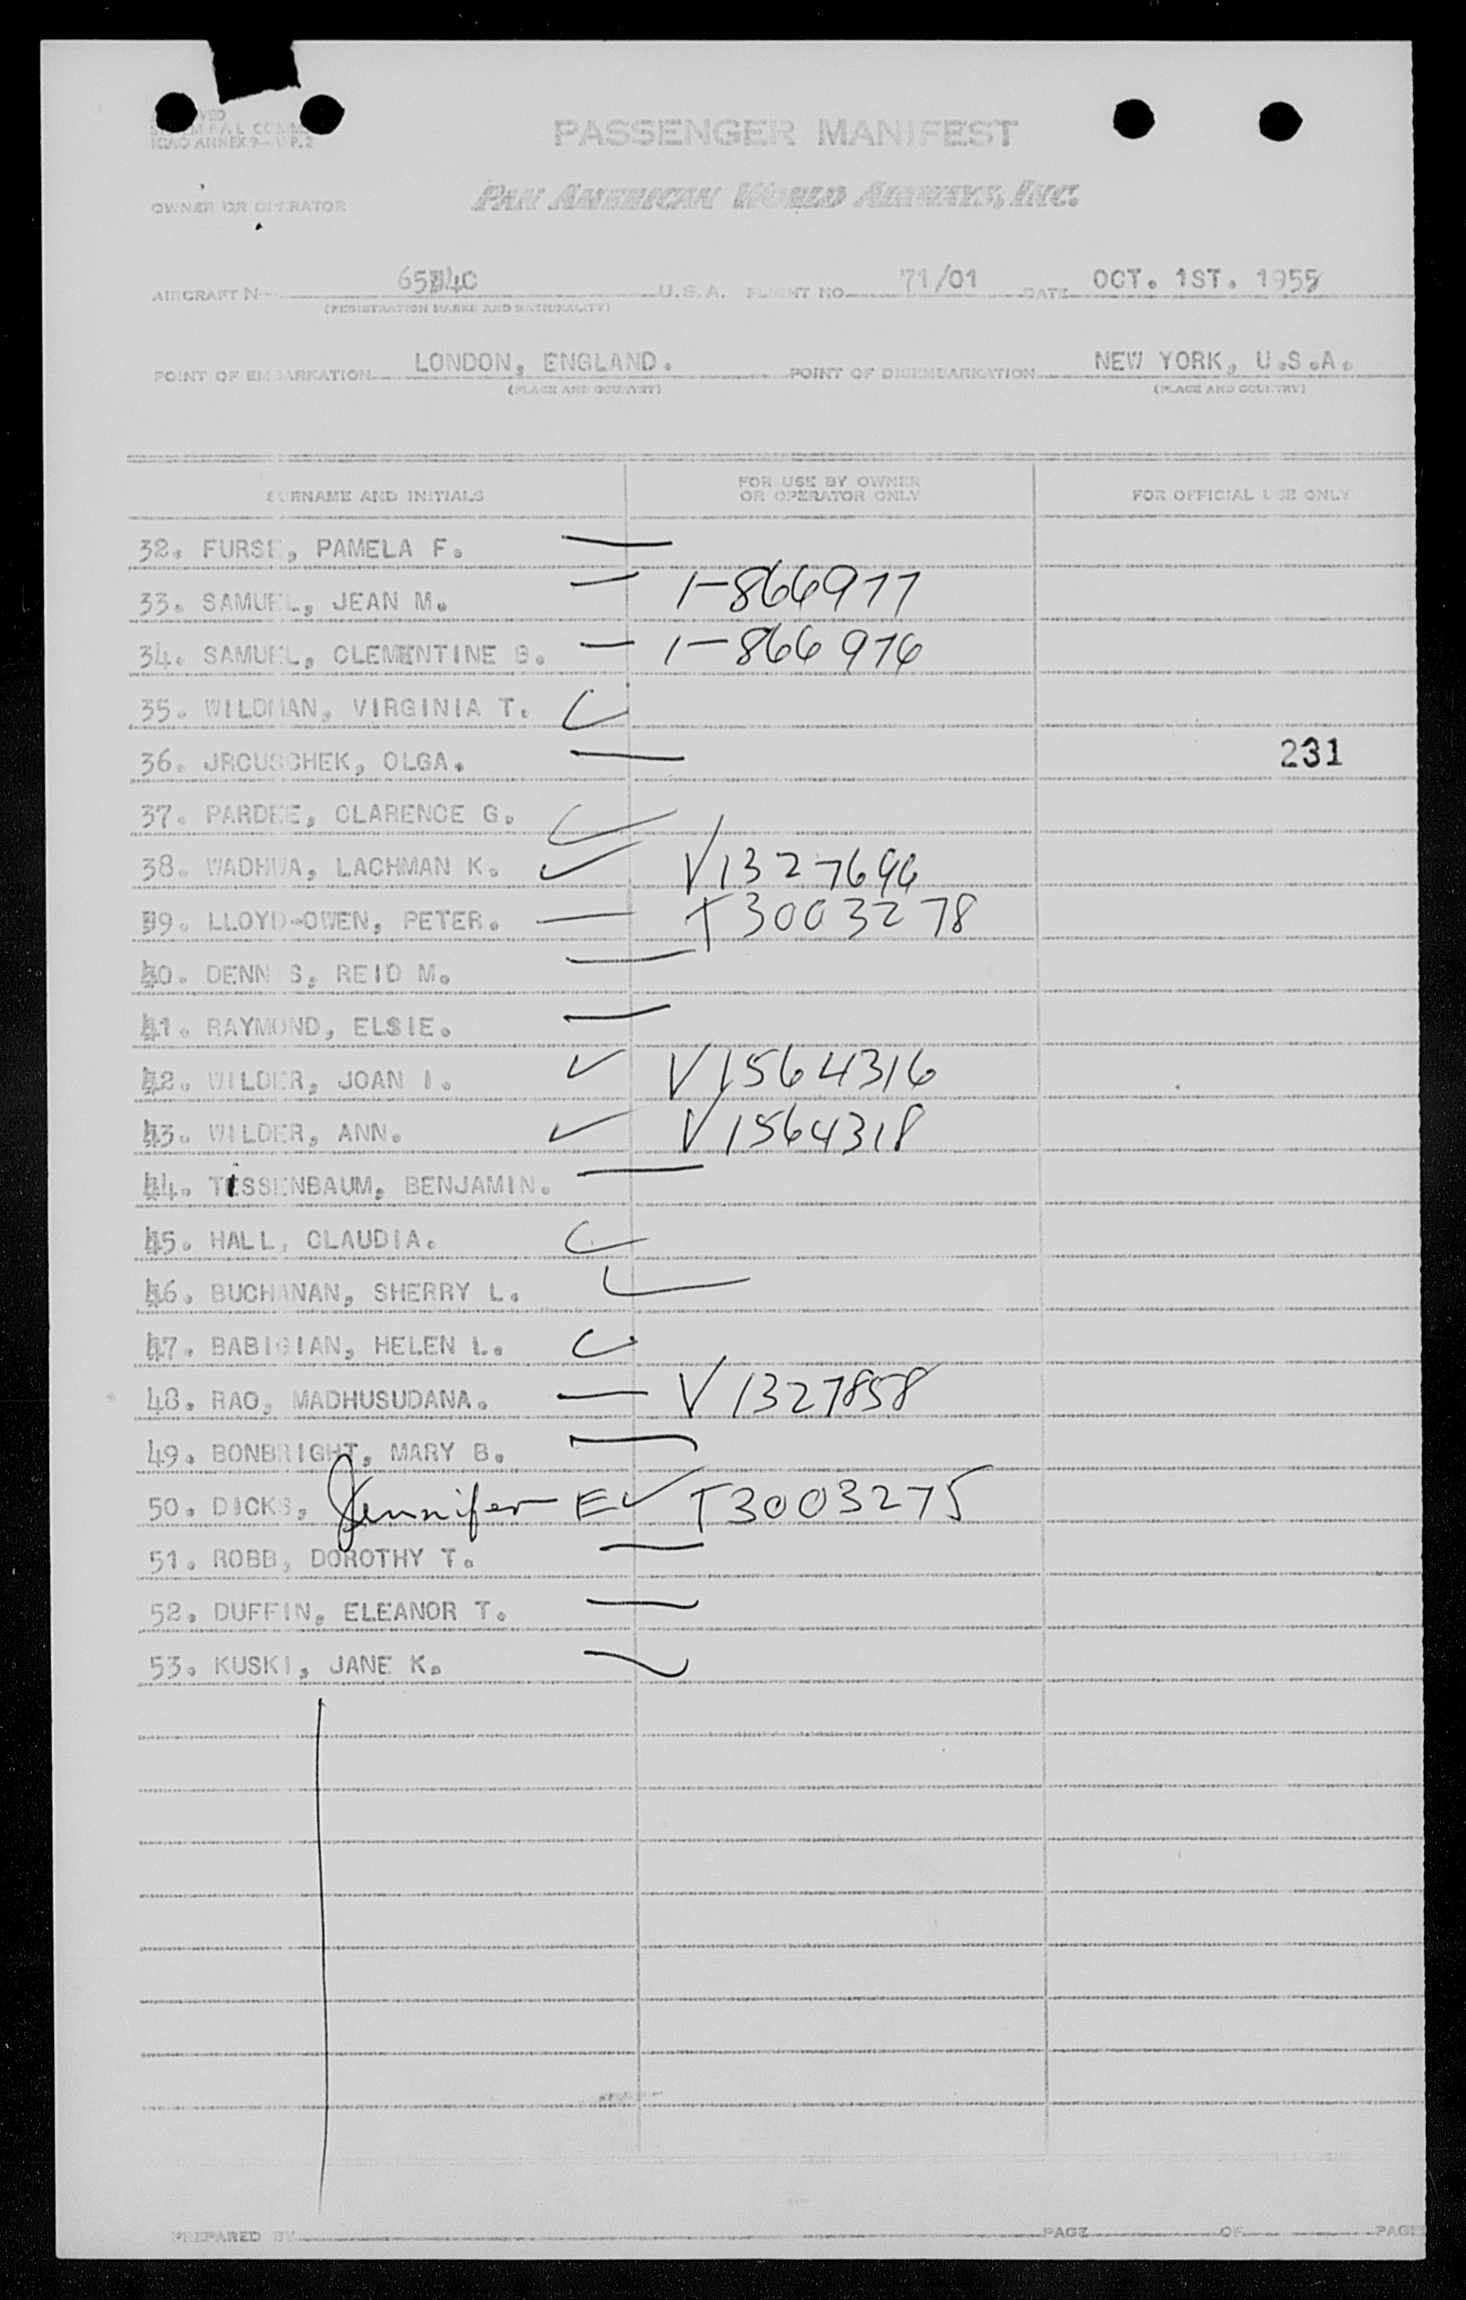 PASSENGER MANIFEST
ICAO ANNEX 9
OWNER OR OPERATOR PAN AMERICAN WORLD AIRWAYS, INC.
AIRCRAFT N U.S.A. FLIGHT NO. 71/01 DATE OCT. 1ST. 1955
(REGISTRATION MARKS AND NATIONALITY)
POINT OF EMBARKATION LONDON, ENGLAND. POINT OF DISEMBARKATION NEW YORK, U.S.A.
(PLACE AND COUNTRY) (PLACE AND COUNTRY)
SURNAME AND INITIALS FOR USE BY OWNER OR OPERATOR ONLY FOR OFFICIAL USE ONLY
32. FURSE, PAMELA F.
33. SAMUEL, JEAN M. 1-866977
34. SAMUEL, CLEMENTINE S. 1-866976
35. WILDMAN, VIRGINIA T.
36. JROUSCHEK, OLGA. 231
37. PARDEE, CLARENCE G.
38. WADHWA, LACHMAN K. V1327696
39. LLOYD-OWEN, PETER. T3003278
40. DENNIS, REID M.
41. RAYMOND, ELSIE.
42. WILDER, JOAN I. V1564316
43. WILDER, ANN. V1564318
44. TISSENBAUM, BENJAMIN.
45. HALL, CLAUDIA.
46. BUCHANAN, SHERRY L.
47. BABIGIAN, HELEN L.
48. RAO, MADHUSUDANA. V1327858
49. BONBRIGHT, MARY B.
50. DICKS, Jennifer E T3003275
51. ROBB, DOROTHY T.
52. DUFFIN, ELEANOR T.
53. KUSKI, JANE K.
PREPARED BY PAGE OF PAGES